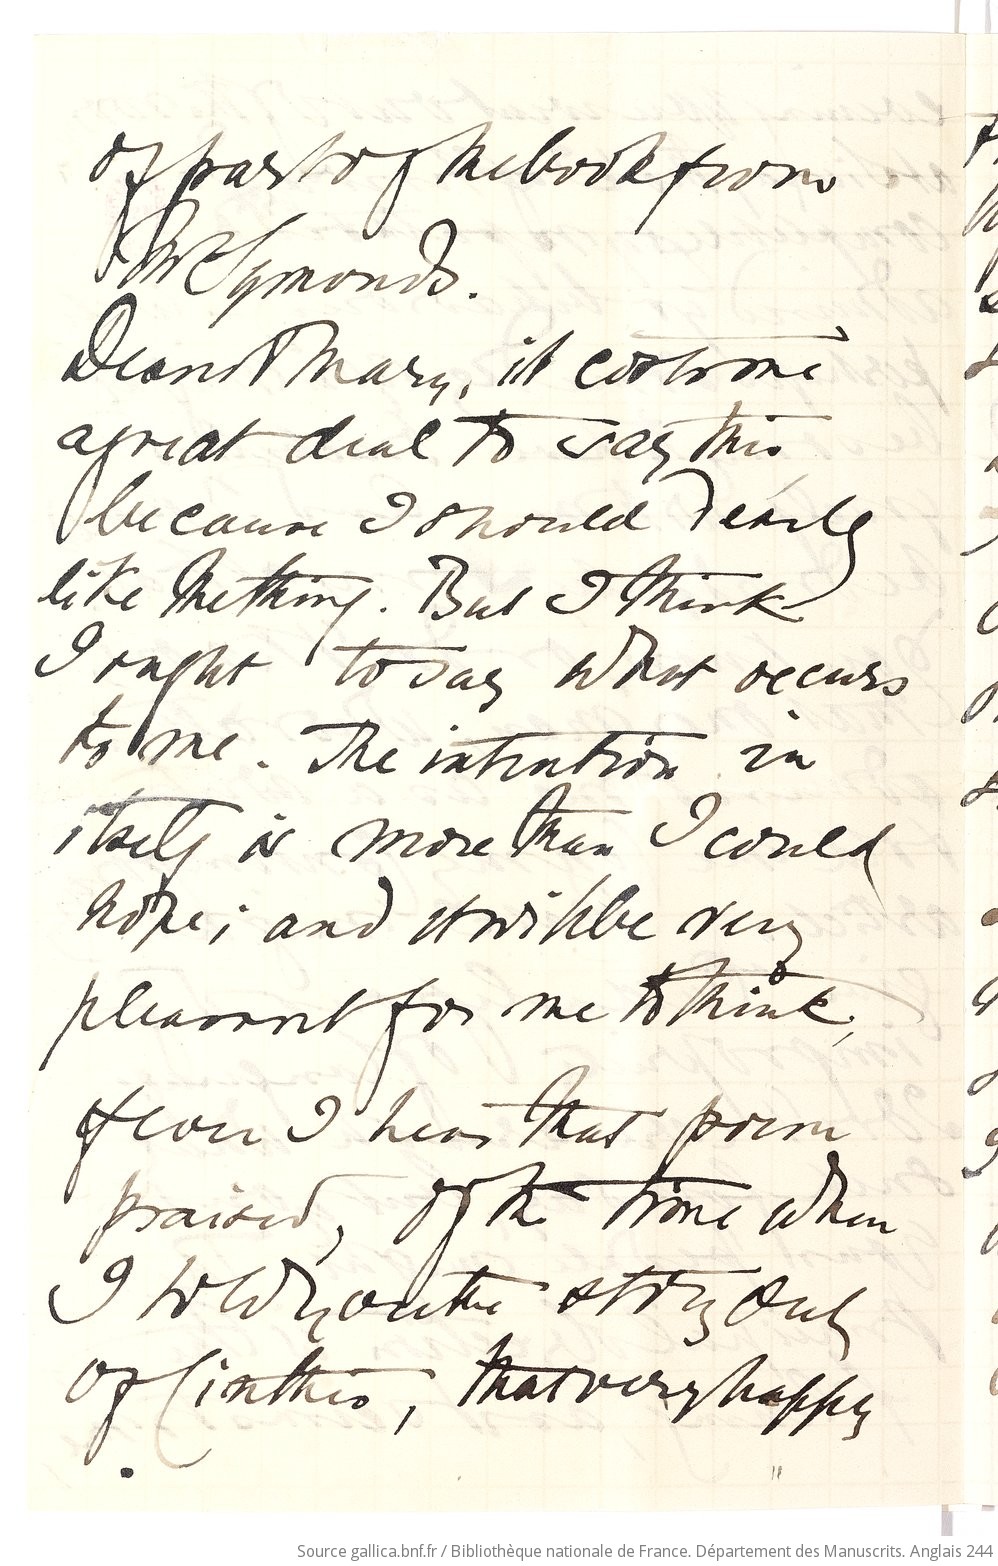 of part of the book from
Mr Symonds.
Dearest Mary, it costs me
a great deal to say this
because I should dearly
like the thing. But I think
I ought to say what occurs
to me. The intention in
itself is more than I could
hope; and it will be very
pleasant for me to think,
if ever I hear that poem
praised, of the time when
I told you the story out
of Cinthio, that very happy
Source gallica.bnf.fr / Bibliothèque nationale de France. Département des Manuscrits. Anglais 244